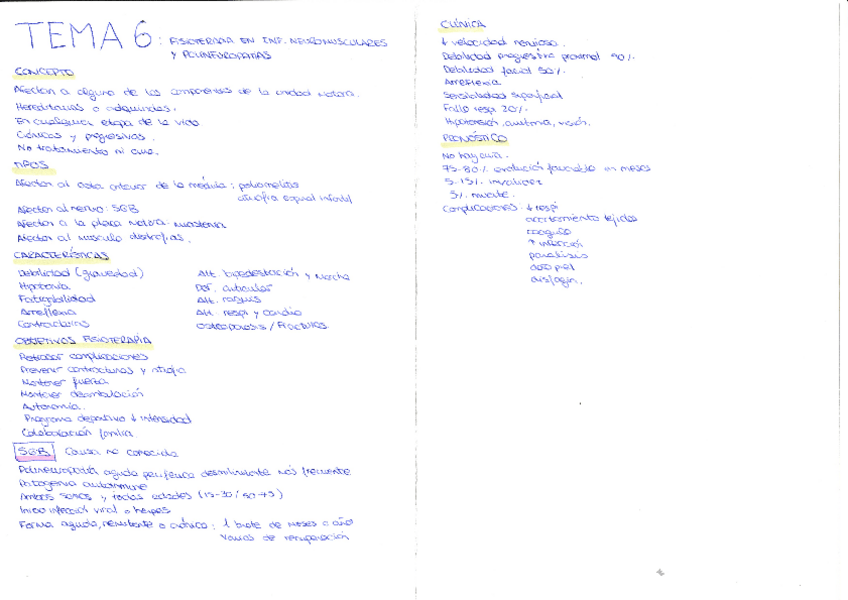 TEMA 6: FISIOTERAPIA EN ENF. NEUROMUSCULARES
Y POLINEUROPATIAS
CONCEPTO
Afectan a alguno de los componentes de la unidad motora.
Hereditarias o adquiridas.
En cualquier etapa de la vida
Crónicas y progresivas.
No tratamiento ni cura.
TIPOS
Afectan al asta anterior de la médula: poliomelitis
atrofia espinal infantil
Afectan al nervio: SGB
Afectan a la placa motora: miastenia
Afectan al músculo distrofias.
CARACTERÍSTICAS
Debilidad (gravedad)
Hipotonía
Fatigabilidad
Arreflexia
Contracturas
Alt. bipedestación y marcha
Def. articular
Alt. raquis
Alt. respi y cardio
Osteoporosis / Fracturas
OBJETIVOS FISIOTERAPIA
Retrasar complicaciones
Prevenir contracturas y atrofia
Mantener fuerza
Mantener deambulación
Autonomía.
Programa deportivo ↓ intensidad
Colaboración familia.
SGB Causa no conocida
Polineuropatía aguda periférica desmielinizante más frecuente
Patogenia autoinmune
Ambos sexos y todas edades (15-30/50-75)
Inicio infección viral o herpes
Forma aguda, remitente o crónica: 1 brote de meses a año
de recuperación
CLÍNICA
↓ velocidad nerviosa.
Debilidad progresiva proximal 90%.
Debilidad facial 50%.
Arreflexia
Sensibilidad superficial
Fallo respi 20%
Hipotensión, arritmia, visión.
PRONÓSTICO
No hay cura.
75-80% evolución favorable en meses
5-15% invalidez
5% muerte.
Complicaciones: ↓ respi
acortamiento tejidos
raquis
↑ infección
parálisis
disfagia.